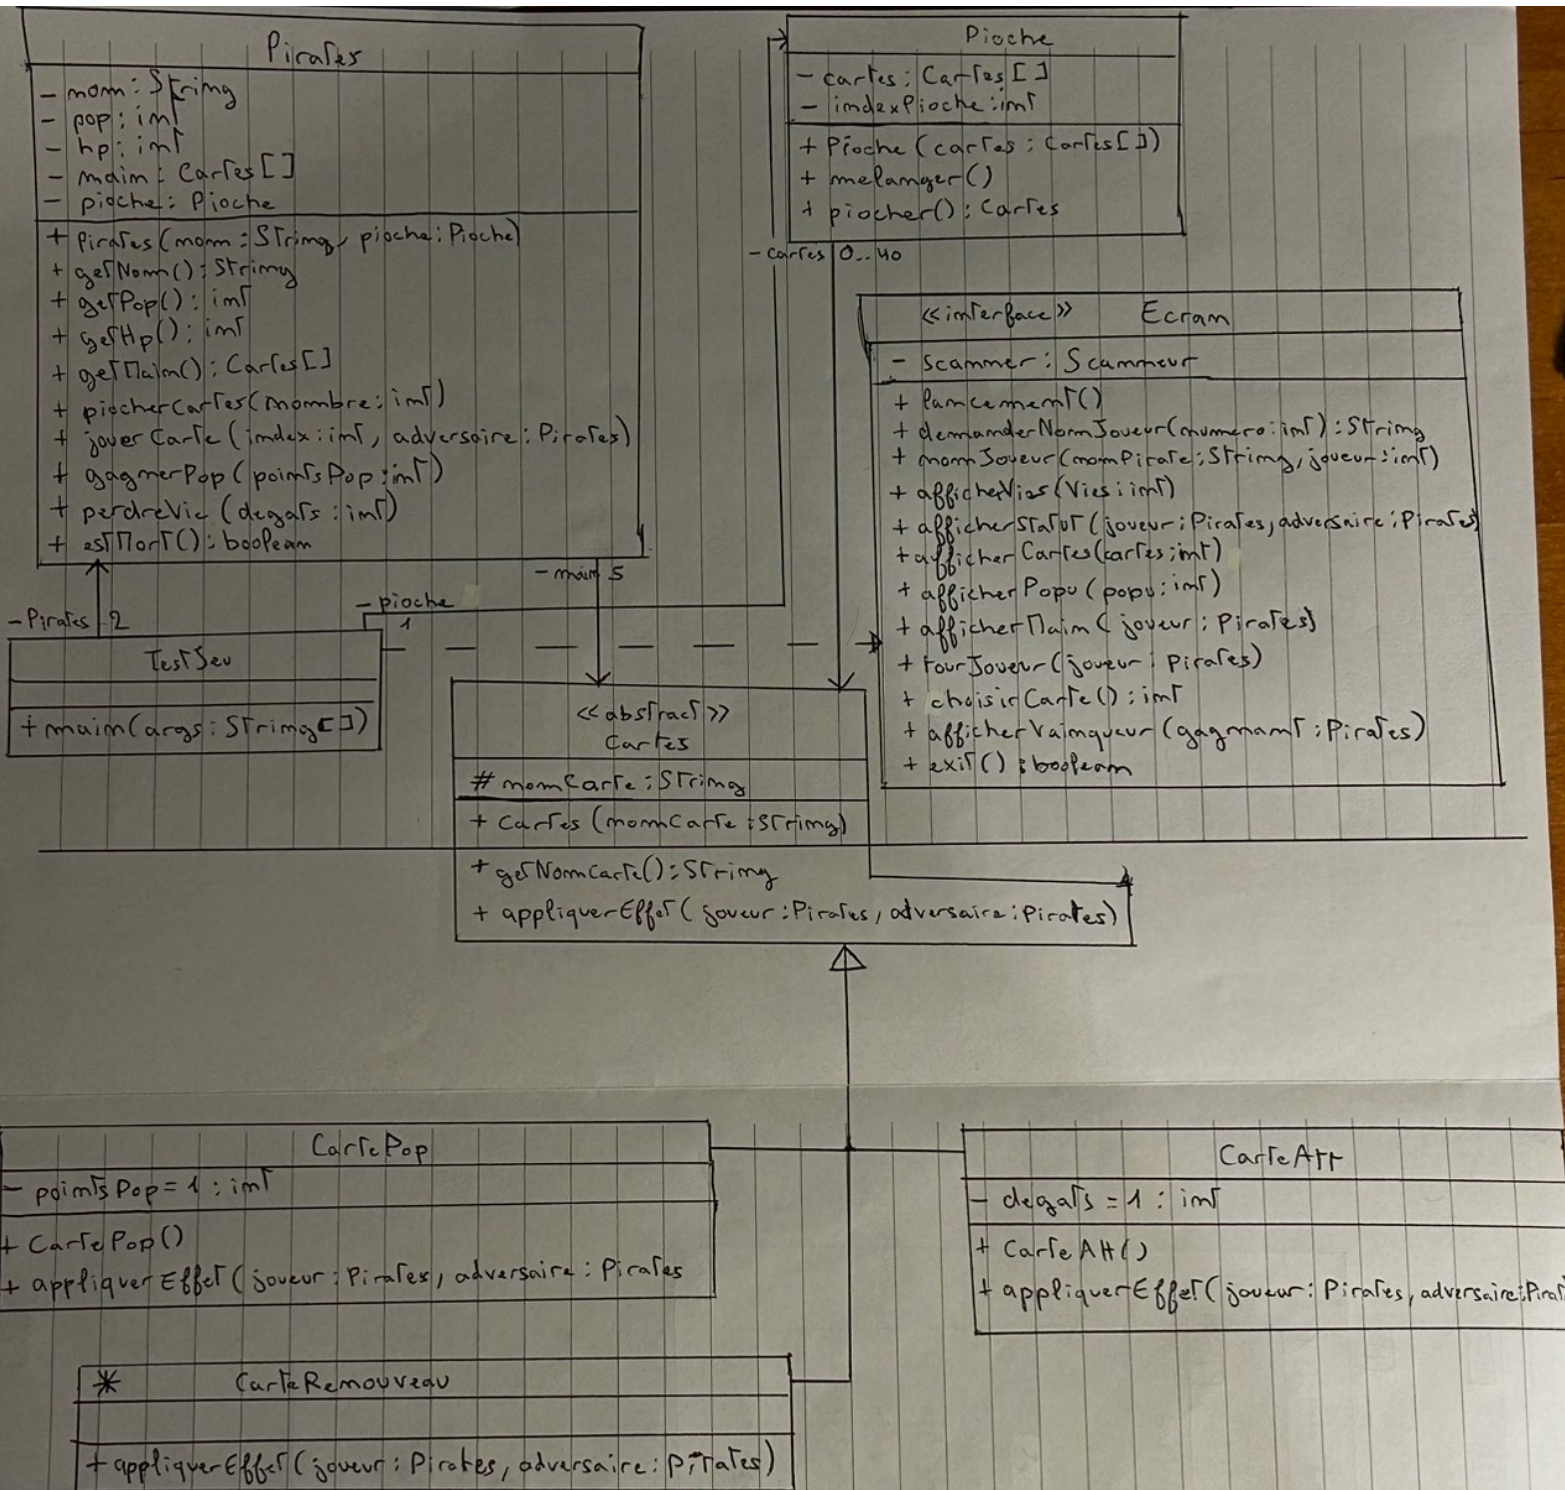 Pirates
- nom : String
- pop : int
- hp : int
- main : Cartes[]
- pioche : Pioche
+ Pirates(nom : String, pioche : Pioche)
+ getNom() : String
+ getPop() : int
+ getHp() : int
+ getMain() : Cartes[]
+ piocherCartes(nombre : int)
+ jouerCarte(index : int, adversaire : Pirates)
+ gagnerPop(pointsPop : int)
+ perdreVie(degats : int)
+ estMort() : boolean
Pioche
- cartes : Cartes[]
- indexPioche : int
+ Pioche(cartes : Cartes[])
+ melanger()
+ piocher() : Cartes
- cartes 0..40
<<interface>> Ecran
- scanner : Scanneur
+ lancement()
+ demanderNomJoueur(numero : int) : String
+ nomJoueur(nomPirate : String, joueur : int)
+ afficherVies(Vies : int)
+ afficherStatut(joueur : Pirates, adversaire : Pirates)
+ afficherCartes(cartes : int)
+ afficherPopu(popu : int)
+ afficherMain(joueur : Pirates)
+ tourJoueur(joueur : Pirates)
+ choisirCarte() : int
+ afficherVainqueur(gagnant : Pirates)
+ exit() : boolean
- main 5
- pioche
1
- Pirates 2
TestJeu
+ main(args : String[])
<<abstract>>
Cartes
# nomCarte : String
+ Cartes(nomCarte : String)
+ getNomCarte() : String
+ appliquerEffet(joueur : Pirates, adversaire : Pirates)
CartePop
- pointsPop = 1 : int
+ CartePop()
+ appliquerEffet(joueur : Pirates, adversaire : Pirates
CarteAtt
- degats = 1 : int
+ CarteAtt()
+ appliquerEffet(joueur : Pirates, adversaire : Pirat
* CarteRenouveau
+ appliquerEffet(joueur : Pirates, adversaire : Pirates)